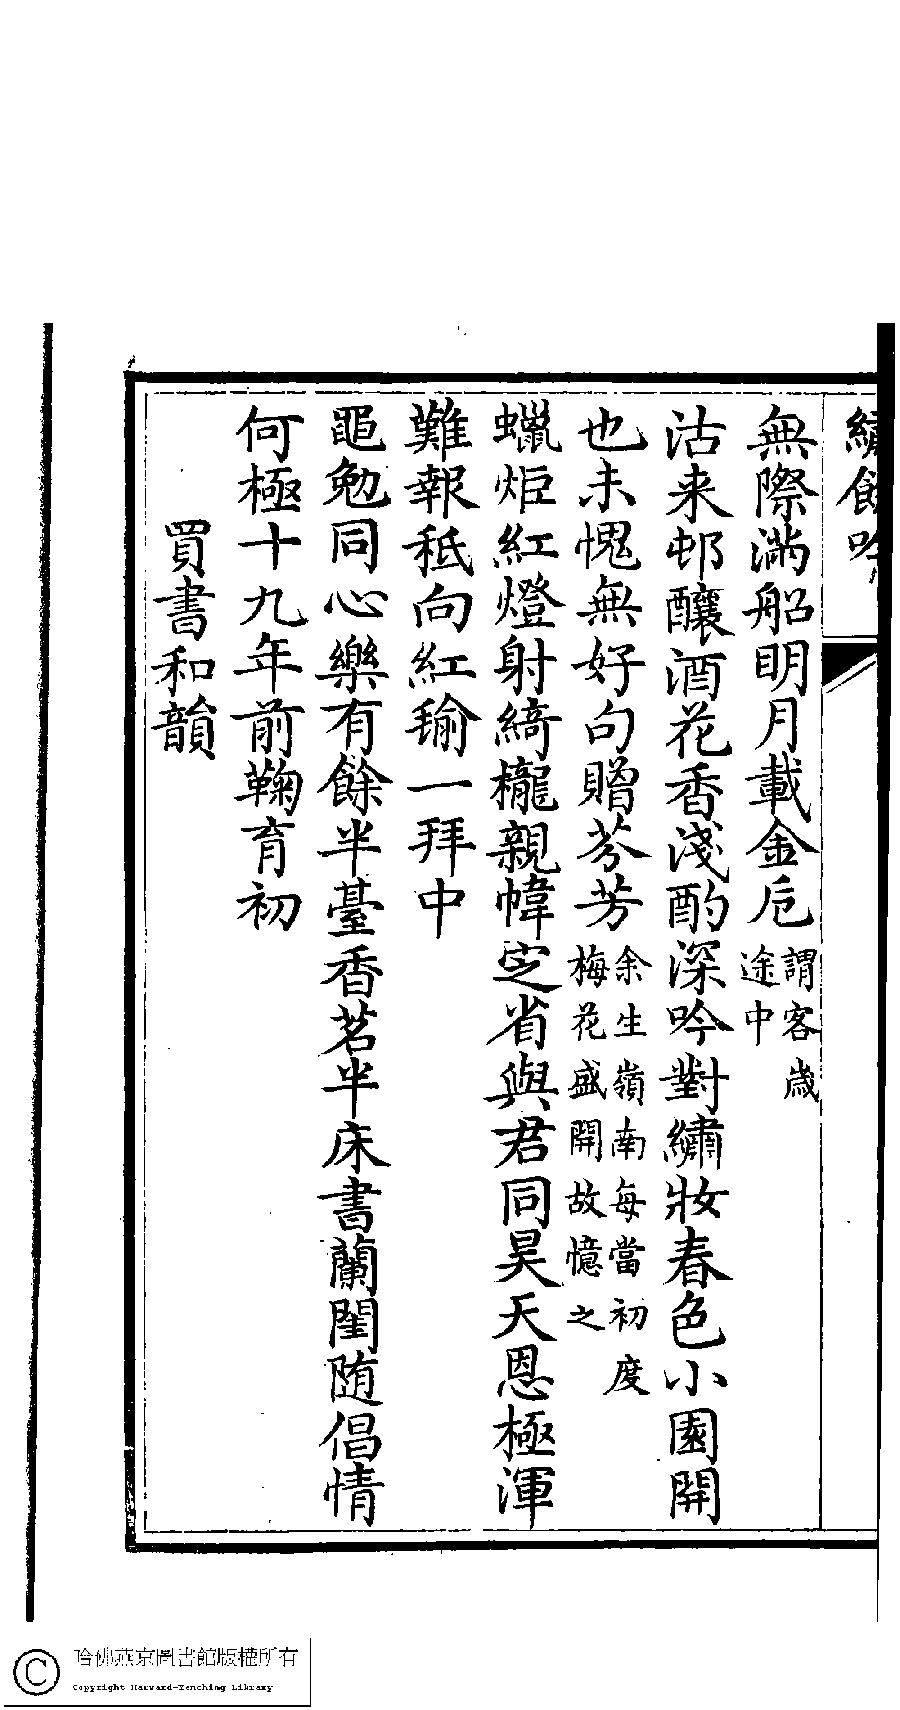 繡餘吟
無際滿船明月載金卮謂客歲途中
沽来邨釀酒花香淺酌深吟對繡妝春色小園開
也未愧無好句贈芬芳余生嶺南每當初度梅花盛開故憶之
蠟炬紅燈射綺櫳親幃定省與君同昊天恩極渾
難報秪向紅瑜一拜中
黽勉同心樂有餘半臺香茗半床書蘭閨随倡情
何極十九年前鞠育初
買書和韻
哈佛燕京圖書館版權所有
Copyright Harvard-Yenching Library